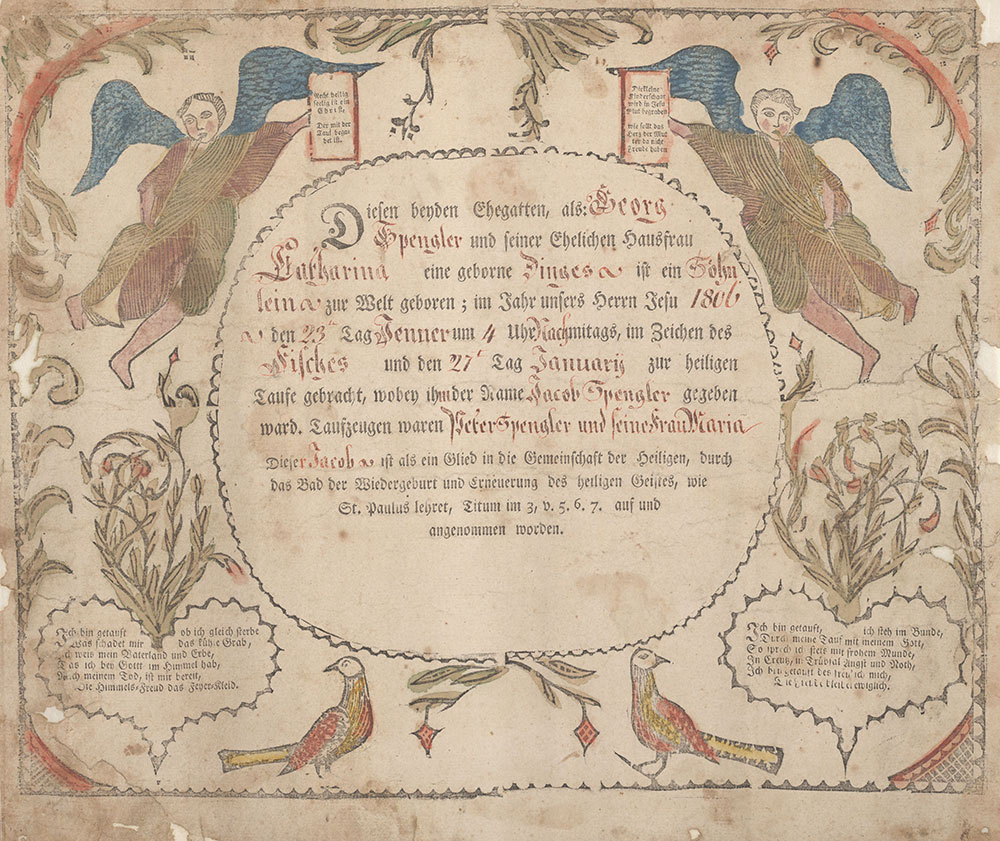 Recht heilig
seelig ist ein
Christ.
Der mit der
Tauf begna
det ist.
Die kleine
Kinderschaar
wird in Jesu
Blut begraben
wie sollt das
Herz der Mut
ter da nicht
Freude haben
Diesen beyden Ehegatten, als: Georg
Spengler und seiner Ehelichen Hausfrau
Catharina eine geborne Dinges ist ein Söhn
lein zur Welt geboren; im Jahr unsers Herrn Jesu 1806
den 23th Tag Jenner um 4 Uhr Nachmitags, im Zeichen des
Fisches und den 27t Tag Januarij zur heiligen
Taufe gebracht, wobey ihm der Name Jacob Spengler gegeben
ward. Taufzeugen waren Peter Spengler und seine Frau Maria
Dieser Jacob ist als ein Glied in die Gemeinschaft der Heiligen, durch
das Bad der Wiedergeburt und Erneuerung des heiligen Geistes, wie
St. Paulus lehret, Titum im 3, v. 5. 6. 7. auf und
angenommen worden.
Ich bin getauft ob ich gleich sterbe
Was schadet mir das kühle Grab,
Ich weis mein Vaterland und Erbe,
Das ich bey Gott im Himmel hab,
Nach meinem Tod, ist mir bereit,
Die Himmels-Freud das Feyer-Kleid.
Ich bin getauft, ich steh im Bunde,
Durch meine Tauf mit meinem Gott,
So sprech ich stets mit frohem Munde,
In Creutz, in Trübsal Angst und Noth,
Ich bin getauft des freu ich mich,
Die Freude bleibet ewiglich.